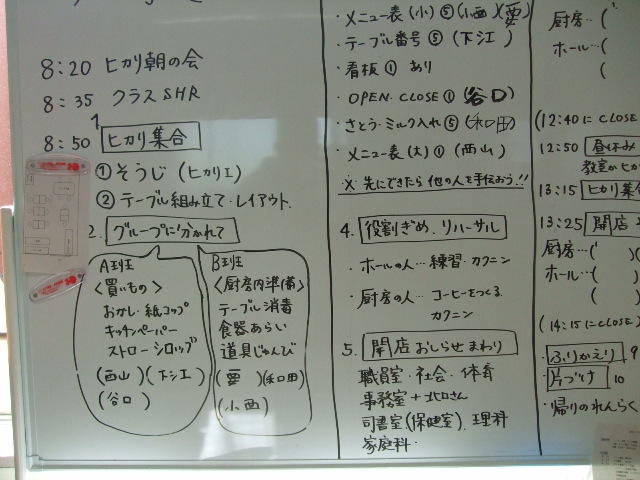 8:20 ヒカリ朝の会
8:35 クラスSHR
8:50 ヒカリ集合
①そうじ(ヒカリエ)
②テーブル組み立て・レイアウト
2. グループに分かれて
A班
<買いもの>
おかし・紙コップ
キッチンペーパー
ストロー・シロップ
(西山)(下江)
(谷口)
B班
<厨房内準備>
テーブル消毒
食器あらい
道具じゅんび
(愛)(和田)
(小西)
・メニュー表(小)⑤(小西)(愛)
・テーブル番号⑤(下江)
・看板① あり
・OPEN.CLOSE①(谷口)
・さとう・ミルク入れ⑤(和田)
・メニュー表(大)①(西山)
※先にできたら他の人を手伝おう!!
4. 役割ぎめ.リハーサル
・ホールの人… 練習・カクニン
・厨房の人… コーヒーをつくる
カクニン
5. 開店おしらせまわり
職員室・社会・体育
事務室+北口さん
司書室(保健室).理科
家庭科・
厨房…(
ホール…(
(
(12:40にCLOSE
12:50 昼休み
教室かヒカ
13:15 ヒカリ集合
13:25 開店
厨房…( )(
ホール…(
( )
(14:15にCLOSE)
・ふりかえり 9
・片づけ 10
・帰りのれんらく